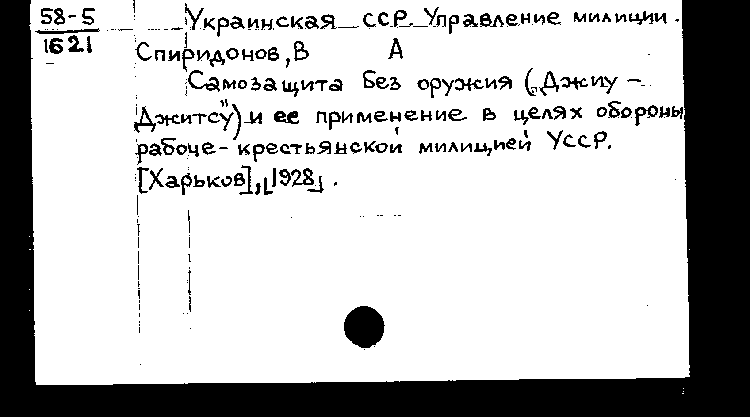 58-5
1621
Украинская ССР. Управление милиции.
Спиридонов, В А
Самозащита без оружия („Джиу-
Джитсу") и ее применение в целях обороны
рабоче-крестьянской милицией УССР.
[Харьков], [1928].